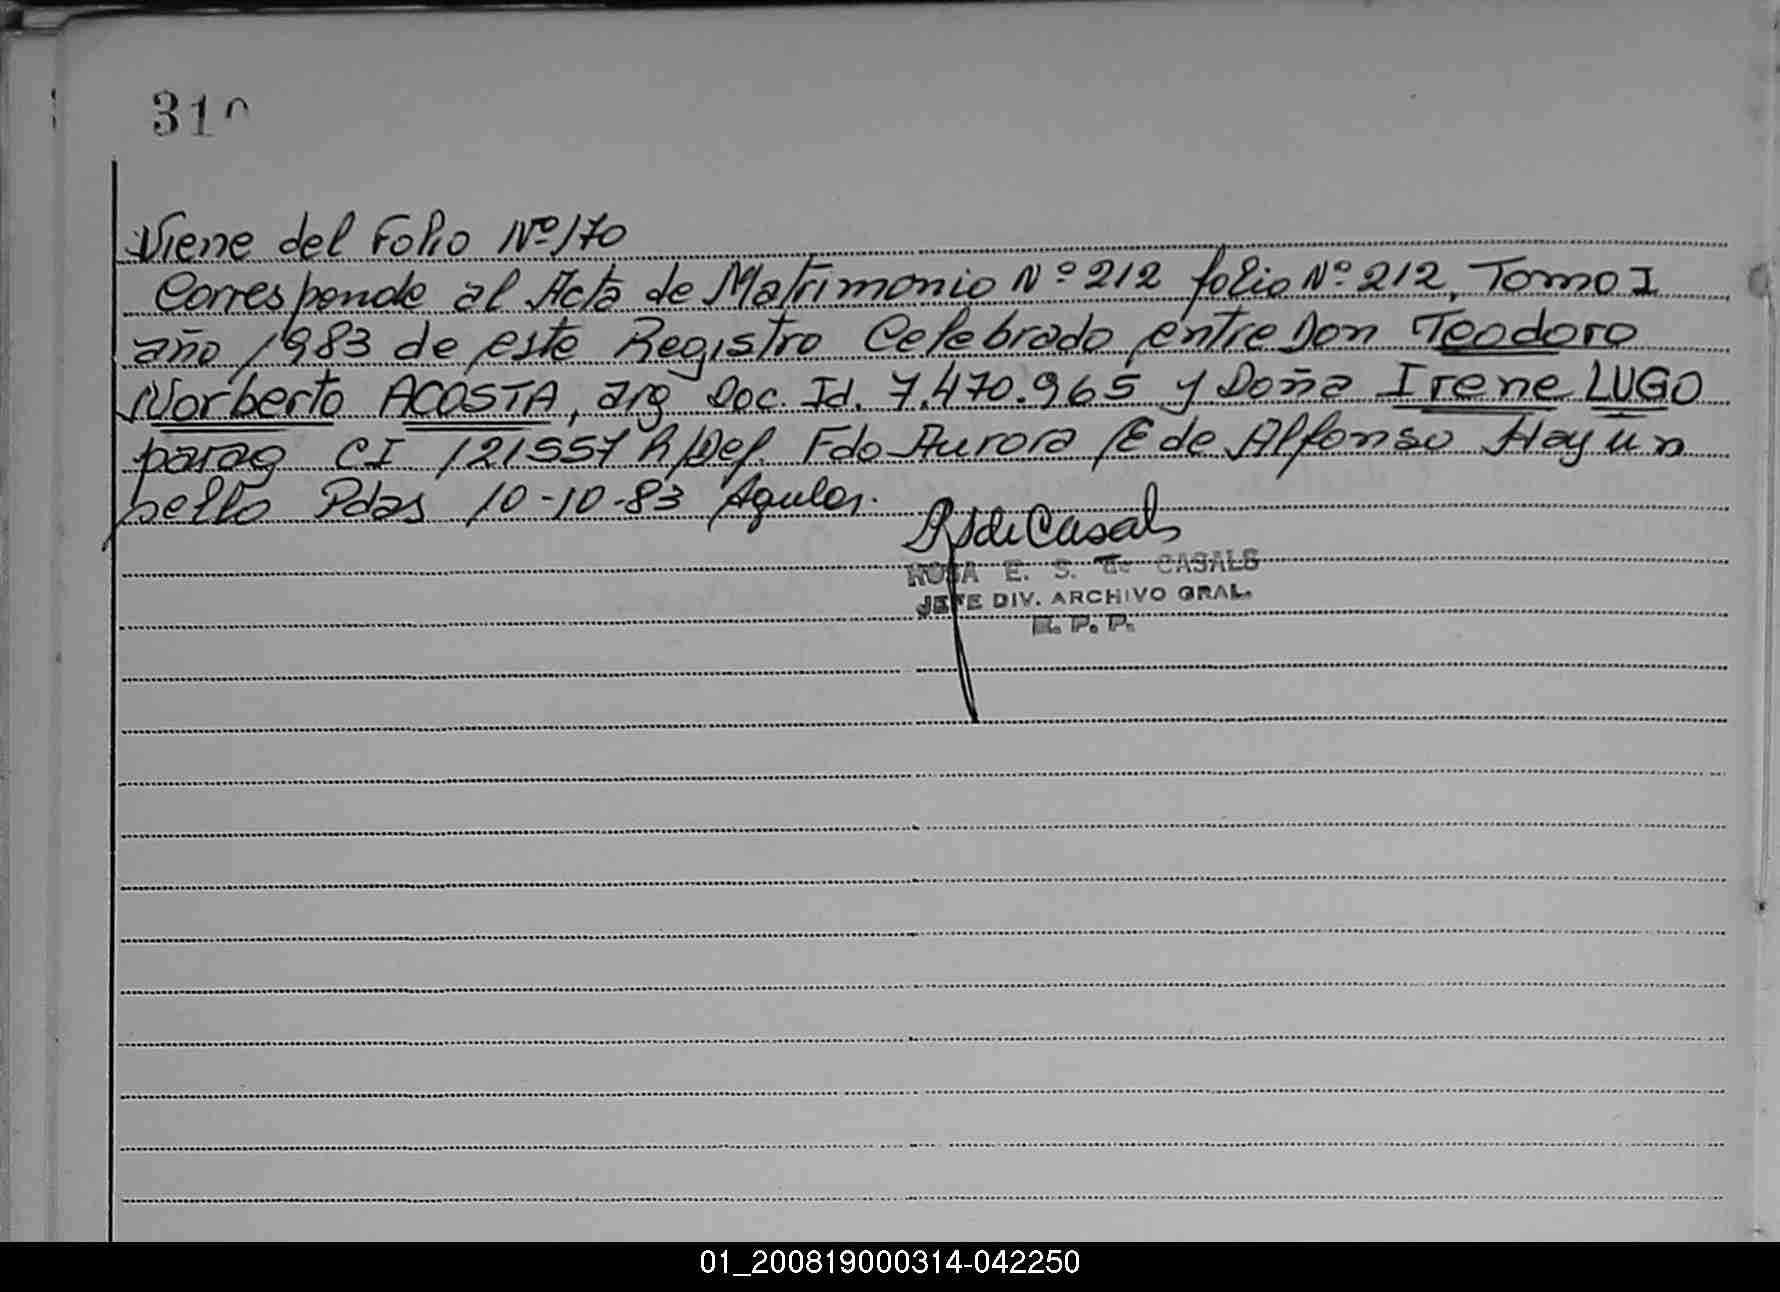 310
Viene del Folio Nº 170
Corresponde al Acta de Matrimonio Nº 212 folio Nº 212, Tomo I
año 1983 de este Registro Celebrado entre Don Teodoro
Norberto ACOSTA, arg Doc. Id. 7.470.965 y Doña Irene LUGO
parag CI 121557 R/Def. Fdo Aurora E de Alfonso Hay un
sello Pdas 10-10-83
R S de Casals
ROSA E. S. de CASALS
JEFE DIV. ARCHIVO GRAL.
R. P. P.
01_200819000314-042250